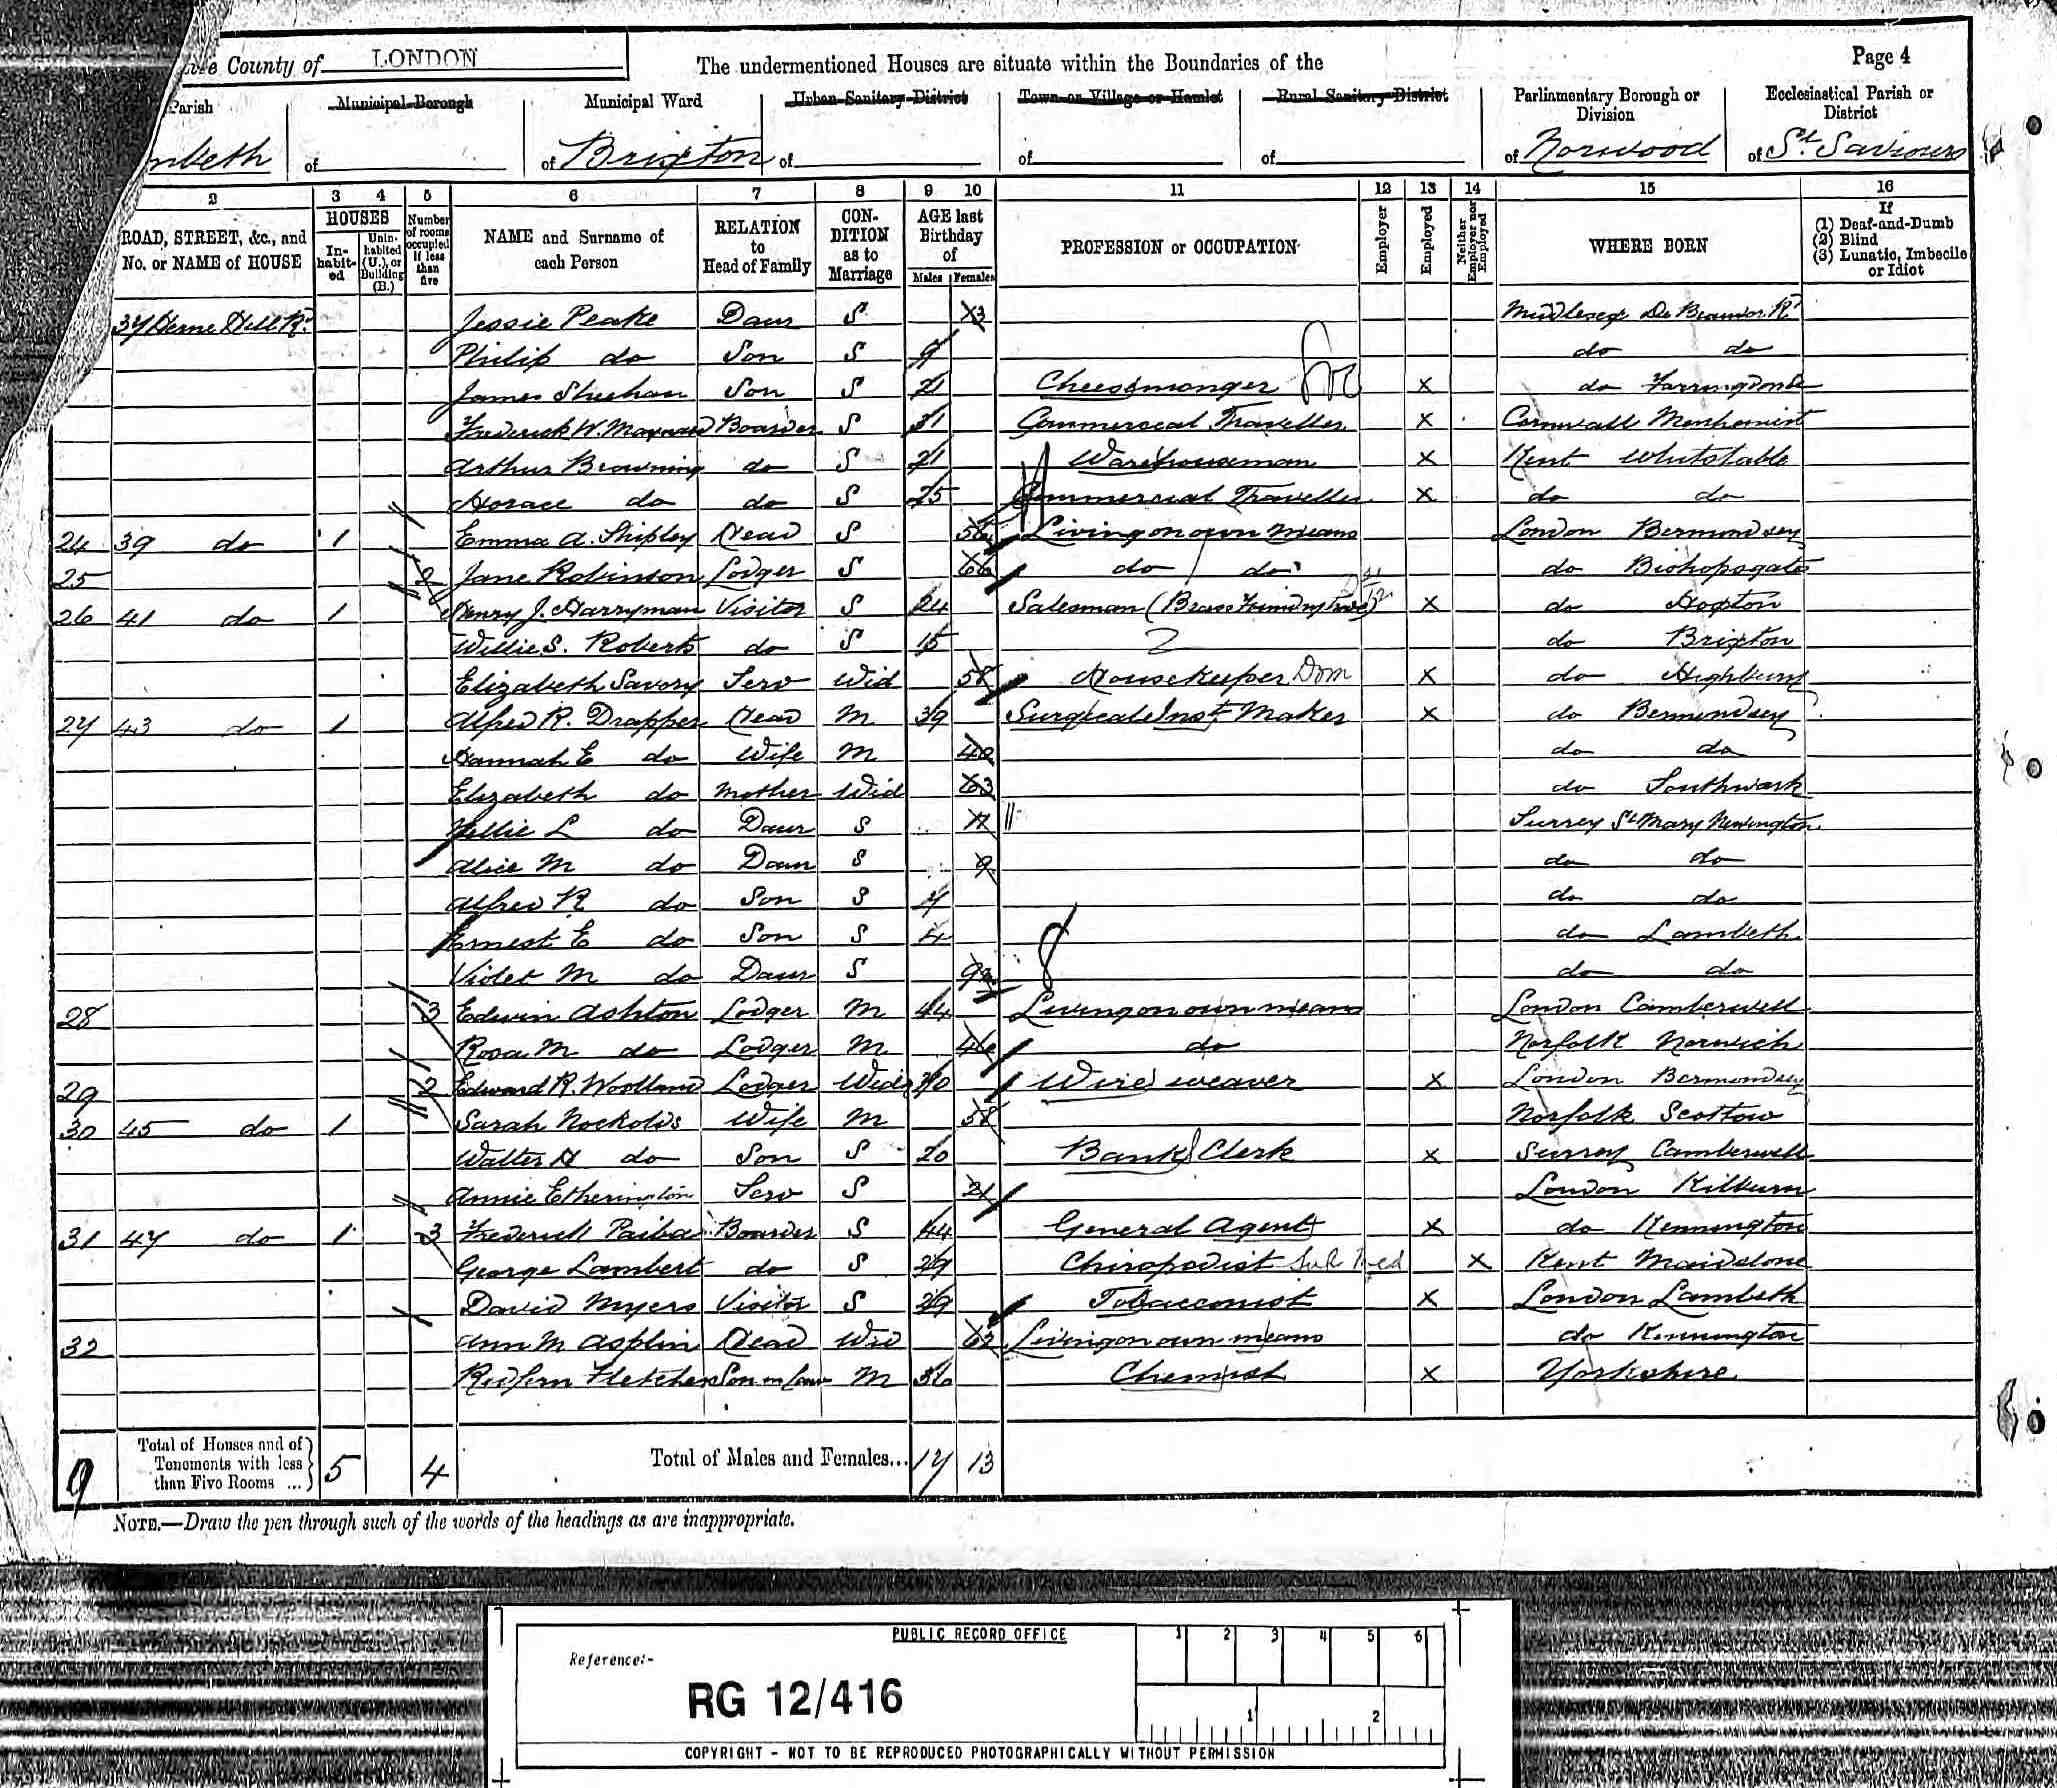 County of LONDON
The undermentioned Houses are situate within the Boundaries of the
Page 4
Parish
Municipal Borough
Municipal Ward
Urban Sanitary District
Town or Village or Hamlet
Rural Sanitary District
Parliamentary Borough or Division
Ecclesiastical Parish or District
mbeth of of Brixton of of of of Norwood of St. Saviours
2 3 4 5 6 7 8 9 10 11 12 13 14 15 16
ROAD, STREET, &c., and No. or NAME of HOUSE
HOUSES
In-habit-ed
Unin-habited (U.), or Building (B.)
Number of rooms occupied if less than five
NAME and Surname of each Person
RELATION to Head of Family
CON-DITION as to Marriage
AGE last Birthday of
Males Females
PROFESSION or OCCUPATION
Employer
Employed
Neither Employer nor Employed
WHERE BORN
If (1) Deaf-and-Dumb (2) Blind (3) Lunatic, Imbecile or Idiot
37 Herne Hill Rd Jessie Peake Daur S Middlesex De Beauvoir Rd
Philip do Son S 9 do do
James Sheehan Son S 21 Cheesemonger X do
Frederick W. Boarder S Commercial Traveller X Cornwall
Arthur Browning do S 21 Warehouseman X Kent Whitstable
Horace do do S 25 Commercial Traveller X do do
24 39 do 1 Emma A. Shipley Head S 56 Living on own means London Bermondsey
25 2 Jane Robinson Lodger S 66 do do do Bishopsgate
26 41 do 1 Henry J. Harryman Visitor S 24 Salesman (Brass X do Hoxton
Willie S. Roberts do S 15 do Brixton
Elizabeth Savory Serv Wid 58 Housekeeper Dom X do Highbury
27 43 do 1 Alfred R. Drapper Head M 39 Surgical Inst Maker X do Bermondsey
Hannah E do Wife M 40 do do
Elizabeth do Mother Wid 63 do Southwark
Nellie L do Daur S 11 Surrey St Mary Newington
Alice M do Daur S 9 do do
Alfred R do Son S 7 do do
Ernest E do Son S 4 do Lambeth
Violet M do Daur S 9m do do
28 3 Edwin Ashton Lodger M 44 Living on own means London Camberwell
Rosa M do Lodger M 46 do Norfolk Norwich
29 2 Edward R. Woolland Lodger Widr 70 Wire weaver X London Bermondsey
30 45 do 1 Sarah Nockolds Wife M 58 Norfolk Scottow
Walter H do Son S 20 Bank Clerk X Surrey Camberwell
Annie Etherington Serv S 21 London Kilburn
31 47 do 1 3 Frederick Paiba Boarder S 44 General Agent X do Kennington
George Lambert do S 29 Chiropodist X Kent Maidstone
David Myers Visitor S 29 Tobacconist X London Lambeth
32 Ann M Asplin Head Wid 62 Living on own means do Kennington
Redfern Fletcher Son in law M 36 Chemist X Yorkshire
9 Total of Houses and of Tenements with less than Five Rooms ... 5 4 Total of Males and Females... 17 13
NOTE.—Draw the pen through such of the words of the headings as are inappropriate.
PUBLIC RECORD OFFICE
1 2 3 4 5 6
Reference:-
RG 12/416
1 2
COPYRIGHT - NOT TO BE REPRODUCED PHOTOGRAPHICALLY WITHOUT PERMISSION